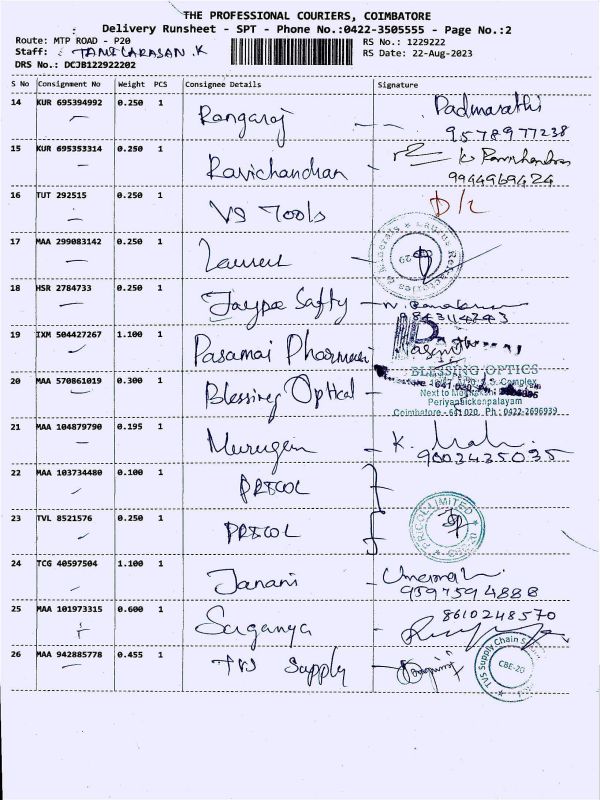 THE PROFESSIONAL COURIERS, COIMBATORE
Delivery Runsheet - SPT - Phone No.:0422-3505555 - Page No.:2
Route: MTP ROAD - P20 RS No.: 1229222
Staff: TAMILARASAN.K RS Date: 22-Aug-2023
DRS No.: DCJB122922202
S No Consignment No Weight PCS Consignee Details Signature
14 KUR 695394992 0.250 1 Rangaraj Padmavathi
9578977238
15 KUR 695353314 0.250 1 Ravichandran
9944969424
16 TUT 292515 0.250 1 VS Tools D/L
17 MAA 299083142 0.250 1
18 HSR 2784733 0.250 1 Jaypee Safty
9843114243
19 IXM 504427267 1.100 1 Pasamai Pharmacy
20 MAA 570861019 0.300 1 Blessing Optical
BLESSING OPTICS
Complex
Next to
Periyanaickenpalayam
Coimbatore - 641 020. Ph : 0422-2696939
21 MAA 104879790 0.195 1 Murugan K.
9002435035
22 MAA 103734480 0.100 1 PRICOL
23 TVL 8521576 0.250 1 PRICOL
PRICOL LIMITED
24 TCG 40597504 1.100 1 Janani
9597594888
25 MAA 101973315 0.600 1 Suganya 8610248570
26 MAA 942885778 0.455 1 TVS Supply
TVS Supply Chain
CBE-20